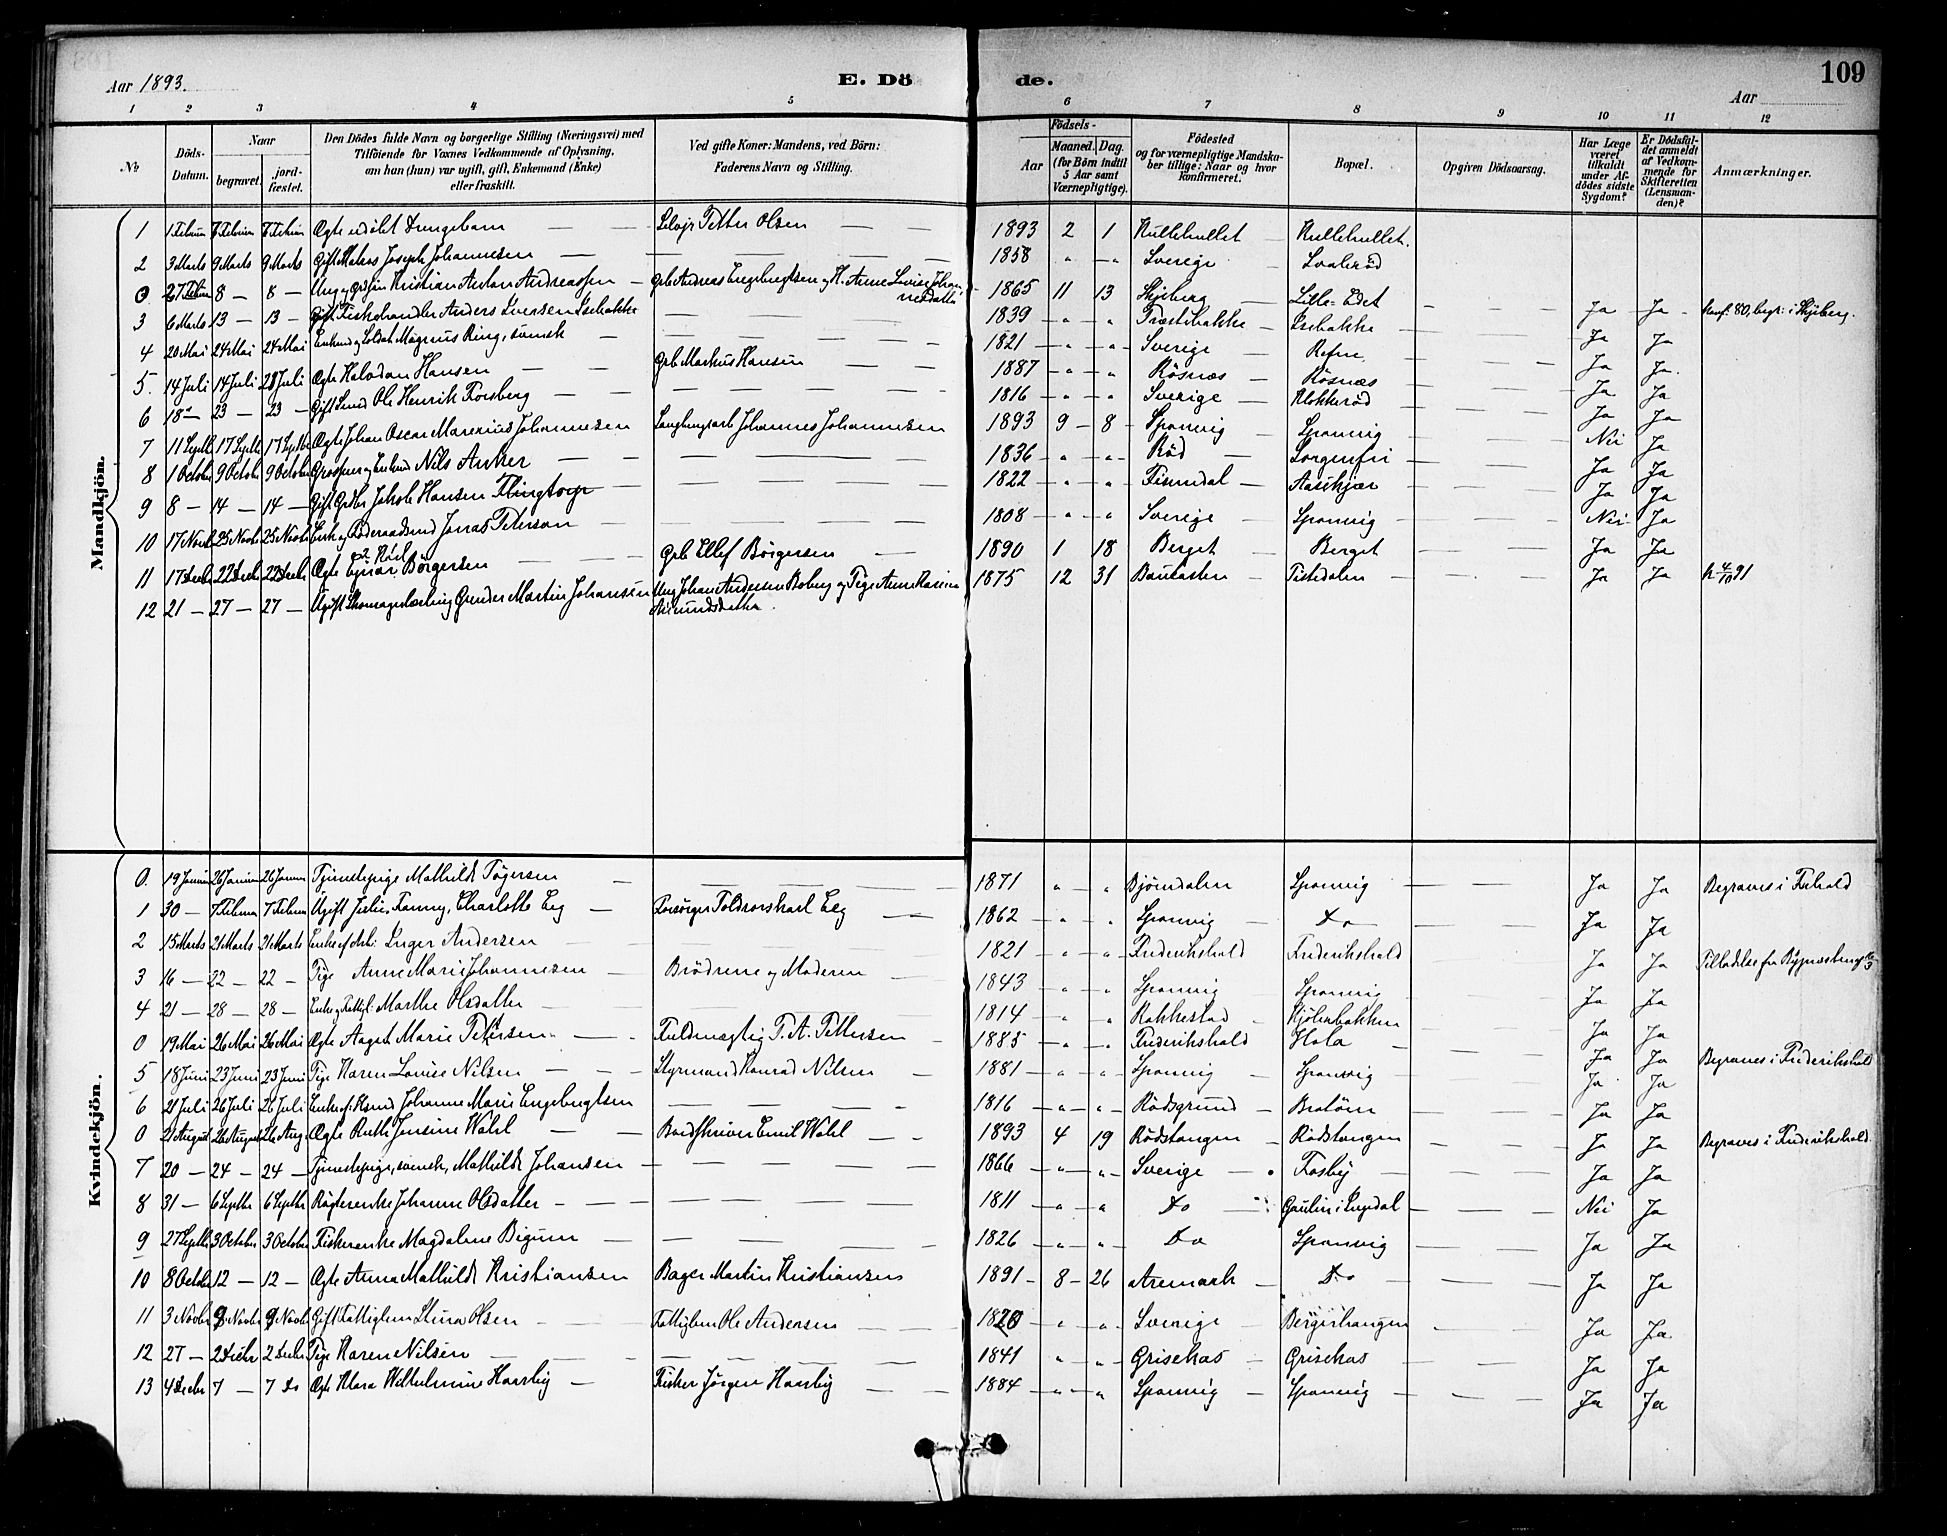 Aar 1893.
E. Dö
de.
109
Aar
1 2 3 4 5 6 7 8 9 10 11 12
No
Döds-Datum.
Naar
begravet.
jord-fæstet.
Den Dödes fulde Navn og borgerlige Stilling (Næringsvei) med
Tilföiende for Voxnes Vedkommende af Oplysning,
om han (hun) var ugift, gift, Enkemand (Enke)
eller fraskilt.
Ved gifte Koner: Mandens, ved Börn:
Faderens Navn og Stilling.
Födsels-
Aar
Maaned. Dag.
(for Börn indtil
5 Aar samt
Værnepligtige).
Födested
og for værnepligtige Mandska-
ber tillige: Naar og hvor
konfirmeret.
Bopæl.
Opgiven Dödsaarsag.
Har Læge
været
tilkaldt
under Af-
dödes sidste
Sygdom?
Er Dödsfal-
det anmeldt
af Vedkom-
mende for
Skifteretten
(Lensman-
den)?
Anmærkninger.
Mandkjön.
1 1 Februar 7 Februar 7 Februar Ægte udöbt Drengebarn — — Petter Olsen — — 1893 2 1 Kullehullet — Kullehullet.
2 3 Marts 9 Marts 9 Marts Gift Matros Joseph Johannesen — — 1858 " " Sverige
0. 27 Febr 8 — 8 — Kristian Anton Andreassen — Grb Andreas Engebregtsen og H. Anne Lovise Johan-nesdatter 1865 11 13 Skjeberg — Lille-Edet — — Ja Ja Konf. 80, begr. i Skjeberg.
3 6 Marts 13 — 13 — Gift Fiskehandler Anders Iversen Isebakke — 1839 " " Præstebakke — Isebakke — — Ja Ja
4 20 Mai 24 Mai 24 Mai Enkemd og Soldat Magnus Ring, svensk — 1821 " " Sverige — Refne — — Ja Ja
5. 14 Juli 14 Juli 28 Juli Ægte Halvdan Hansen — — Grb Markus Hansen 1887 " " Rösnæs — Rösnæs — — Ja Ja
6 18 — 23 — 23 — Gift Smed Ole Henrik Forsberg — — 1816 " " Sverige — Klokkeröd — — Ja Ja
7 11 Septb 17 Septb 17 Septb Ægte Johan Oscar Marenius Johannesen Johannes Johannesen 1893 9 8 Sponvig — Sponvig — — Nei Ja
8 1 October 9 October 9 October Enkemd Nils Anker — — 1836 " " Röd — Sorgenfri — — Ja Ja
9 8 — 14 — 14 — Gift Grdbr Jakob Hansen Thingtorp — 1822 " " — Aaskjær — — Ja Ja
10 17 Novb 25 Novb 25 Novb Enkem og Föderaadsmd Jonas Peterson — 1808 " " Sverige — Sponvig — — Nei Ja
11 17 Decbr 22 Decbr 22 Decbr Ægte Ejnar Börgersen — Grb Ellef Börgersen — 1890 1 18 Berget — Berget — — Ja Ja
12 21 — 27 — 27 — Ugift Skomagerlærling Martin Johansen Ung Johan Andersen Boberg og Pige Anne Karine 1875 12 31 Bautasten — Tistedalen — — Ja Ja k 4/10 91
Kvindekjön.
0. 19 Januar 26 Januar 26 Januar Tjenestepige Mathilde Pögersen — — 1871 " " Björndalen Sponvig — — Ja Ja Begraves i Frhald
1 30 — 7 Februar 7 Februar Ugift Julie, Fanny, Charlotte Eeg — Forsörger Toldrorskarl Eeg — 1862 " " Sponvig — Do — Ja Ja
2 15 Marts 21 Marts 21 Marts Enke af Arb: Inger Andersen — 1821 " " Frederikshald Frederikshald — Ja Ja Tilladelse fra
3 16 — 22 — 22 — Pige Anne Marie Johannesen — Brödrene og Moderen — 1843 " " Sponvig — Sponvig — Ja Ja
4 21 — 28 — 28 — Enke og Fattigl: Marthe Olsdatter — 1814 " " Rakkestad — Kjölenbakken Ja Ja
0 19 Mai 26 Mai 26 Mai Ægte Aagot Marie Pettersen — Fuldmægtig T. A. Pettersen — 1885 " " Frederikshald Hola — Ja Ja Begraves i Frederikshald
5 18 Juni 23 Juni 23 Juni Pige Karen Louise Nilsen — Styrmand Konrad Nilsen — 1881 " " Sponvig — Sponvig — Ja Ja
6 21 Juli 26 Juli 26 Juli Johanne Marie Engebregtsen — 1816 " " Rödsgrund — Bratöen — Ja Ja
0 21 August 26 August 26 Aug Ægte Ruth Jensine Wahl — Emil Wahl — 1893 4 19 Rödstangen — Rödstangen — Ja Ja Begraves i Frederikshald
7 20 — 24 — 24 — Tjenestepige, svensk, Mathilde Johansen — 1866 " " Sverige — Fosby — Ja Ja
8 31 — 6 Septbr 6 Septbr Johanne Olsdatter — 1811 " " Do — Nei Ja
9 27 Septbr 3 October 3 October Fiskerenke Magdalene Bigum — 1826 " " Do Sponvig — Ja Ja
10 8 Octobr 12 — 12 — Ægte Anna Mathilde Kristiansen Bager Martin Kristiansen 1891 8 26 Aremark — Do — Ja Ja
11 3 Novbr 9 Novbr 9 Novbr Gift Fattiglem Stina Olsen — Fattiglem Ole Andersen — 1820 " " Sverige — Ja Ja
12 27 — 2 Decbr 2 Decbr Pige Karen Nilsen — 1841 " " Grisekas — Grisekas — Ja Ja
13 4 Decbr 7 — 7 Do Ægte Klara Wilhelmine Haarby — Fisker Jörgen Haarby — 1884 " " Sponvig — Sponvig — Ja Ja